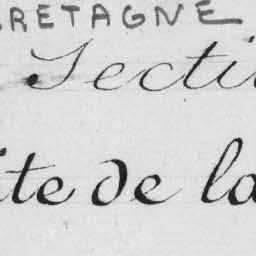 RETAGNE
Secti
ite de la